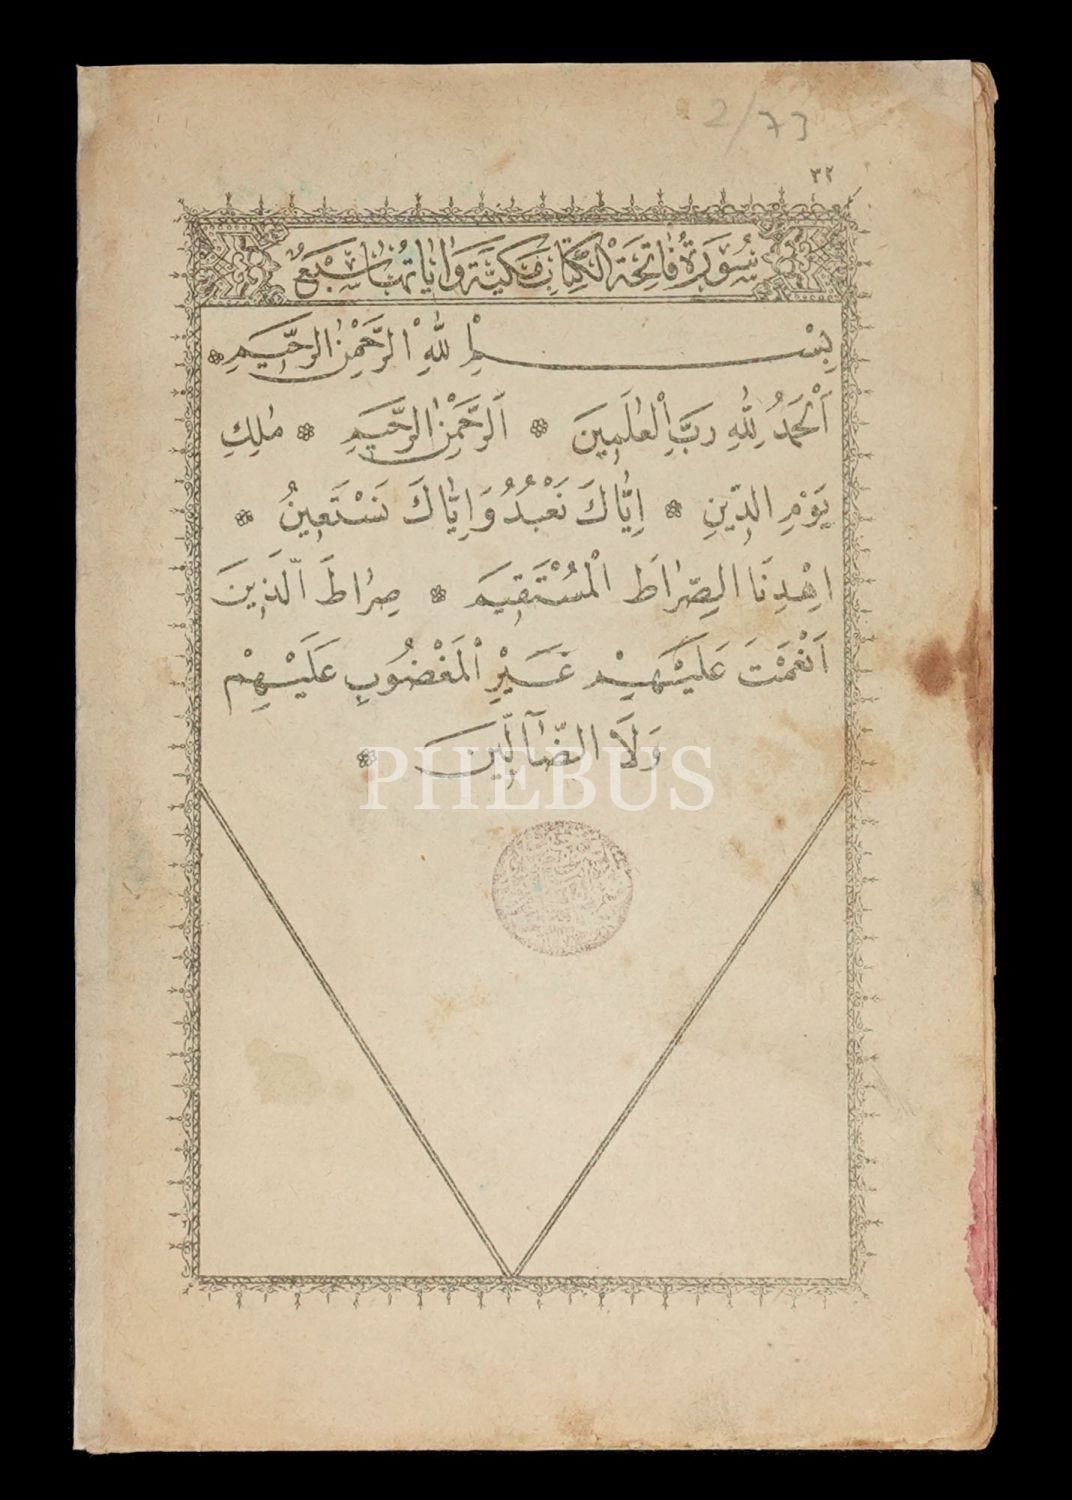 2/73
٣٢
سُورَةُ فَاتِحَةِ الْكِتَابِ مَكِّيَّةٌ وَاٰيَاتُهَا سَبْعٌ
بِسْمِ اللّٰهِ الرَّحْمٰنِ الرَّحِيمِ
اَلْحَمْدُ لِلّٰهِ رَبِّ الْعٰلَمِينَ * اَلرَّحْمٰنِ الرَّحِيمِ * مٰلِكِ
يَوْمِ الدِّينِ * اِيَّاكَ نَعْبُدُ وَاِيَّاكَ نَسْتَعِينُ *
اِهْدِنَا الصِّرٰاطَ الْمُسْتَقِيمَ * صِرٰاطَ الَّذِينَ
اَنْعَمْتَ عَلَيْهِمْ غَيْرِ الْمَغْضُوبِ عَلَيْهِمْ
وَلَا الضَّٓالِّينَ *
PHEBUS